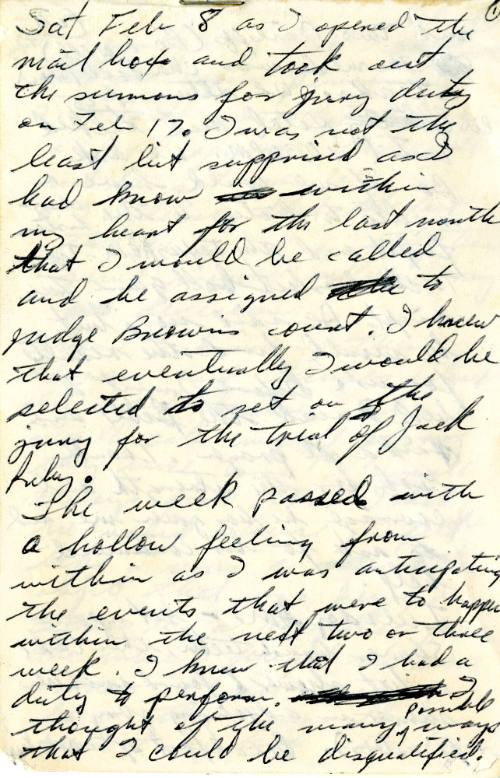 1
Sat Feb 8 as I opened the
mail box and took out
the summons for jury duty
on Feb 17. I was not the
least bit supprised as I
had know within
my heart for the last month
that I would be called
and be assigned to
judge Browns court. I knew
that eventually I would be
selected to set on the
jury for the trial of Jack
Ruby.
The week passed with
a hollow feeling from
within as I was anticipating
the events that were to happen
within the next two or three
week. I knew that I had a
duty to perform. I
thought of the many possible ways
that I could be disqualified.